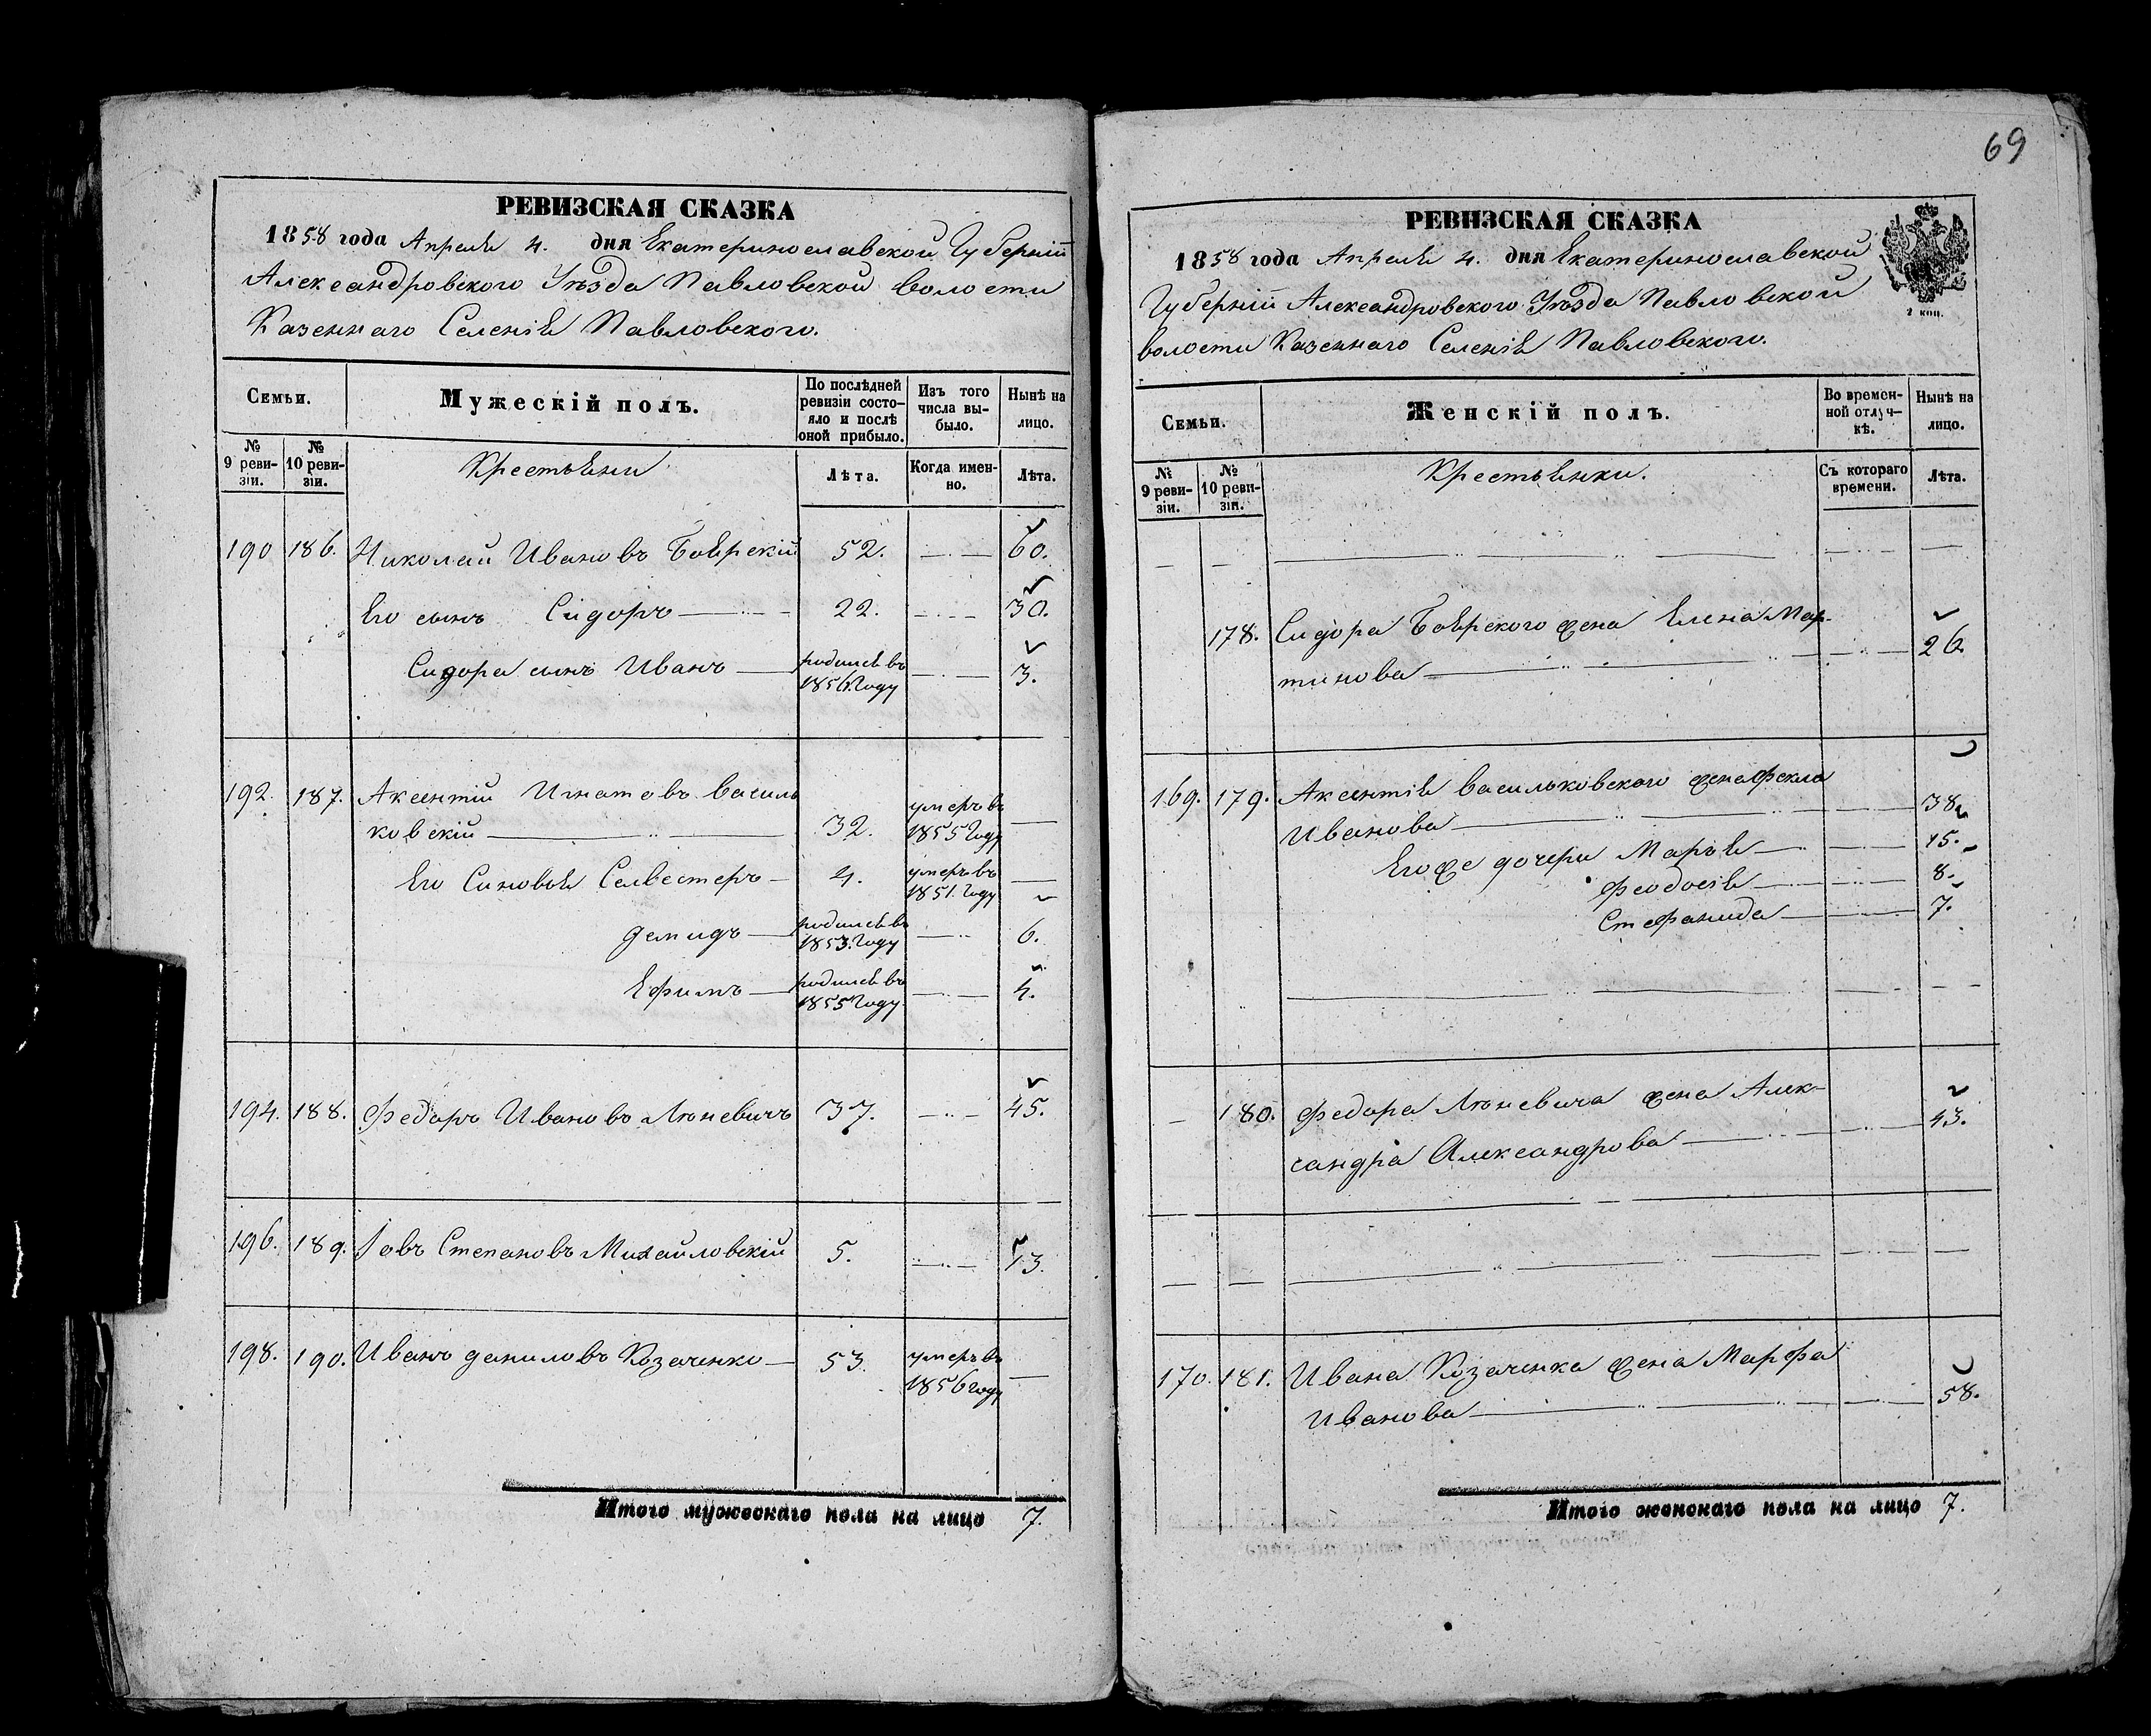 РЕВИЗСКАЯ СКАЗКА
1858 года Апреля 4. дня Екатеринославской Губерніи
Александровского Уѣзда Павловской волости
Казеннаго Селенія Павловского.
Семьи.
Мужескій полъ.
По послѣдней ревизіи состояло и послѣ оной прибыло.
Изъ того числа выбыло.
Нынѣ на лицо.
№ 9 ревизіи.
№ 10 ревизіи.
Крестьяни
Лѣта.
Когда именно.
Лѣта.
190 186. Николай Ивановъ Боярскій 52. 60.
Его сынъ Сидоръ 22. 30.
Сидора сынъ Иванъ родился въ 1856. Году 3.
192. 187. Аксентій Игнатовъ Василь
ковскій 32. умеръ въ 1855 Году
Его Синовья Селвестеръ 4. умеръ въ 1851. Году
демидъ родился въ 1853. Году 6.
Ефимъ родился въ 1855 Году 4.
194. 188. Федоръ Ивановъ Люневичъ 37. 45.
196. 189. Іовъ Степановъ Михайловскій 5. 13.
198. 190. Иванъ даниловъ Козаченко 53. умеръ въ 1856 году
Итого мужескаго пола на лицо 7.
69
РЕВИЗСКАЯ СКАЗКА
1858 года Апреля 4. дня Екатеринославской
Губерніи Александровского Уѣзда Павловской
волости Казеннаго Селенія Павловского.
2 коп.
Семьи.
Женскій полъ.
Во временной отлучкѣ.
Нынѣ на лицо.
№ 9 ревизіи.
№ 10 ревизіи.
Крестьянки.
Съ котораго времени.
Лѣта.
178. Сидора Боярского жена Елена Мар-
тинова 26
169. 179. Аксентія Васильковского жена Фекла
Иванова 38
Его же дочери Марья 15.
Феодосія 8.
Стефанида 7.
180. Федора Люневича жена Алек-
сандра Александрова 43.
170. 181. Ивана Козаченка жена Марфа
Иванова 58.
Итого женскаго пола на лицо 7.